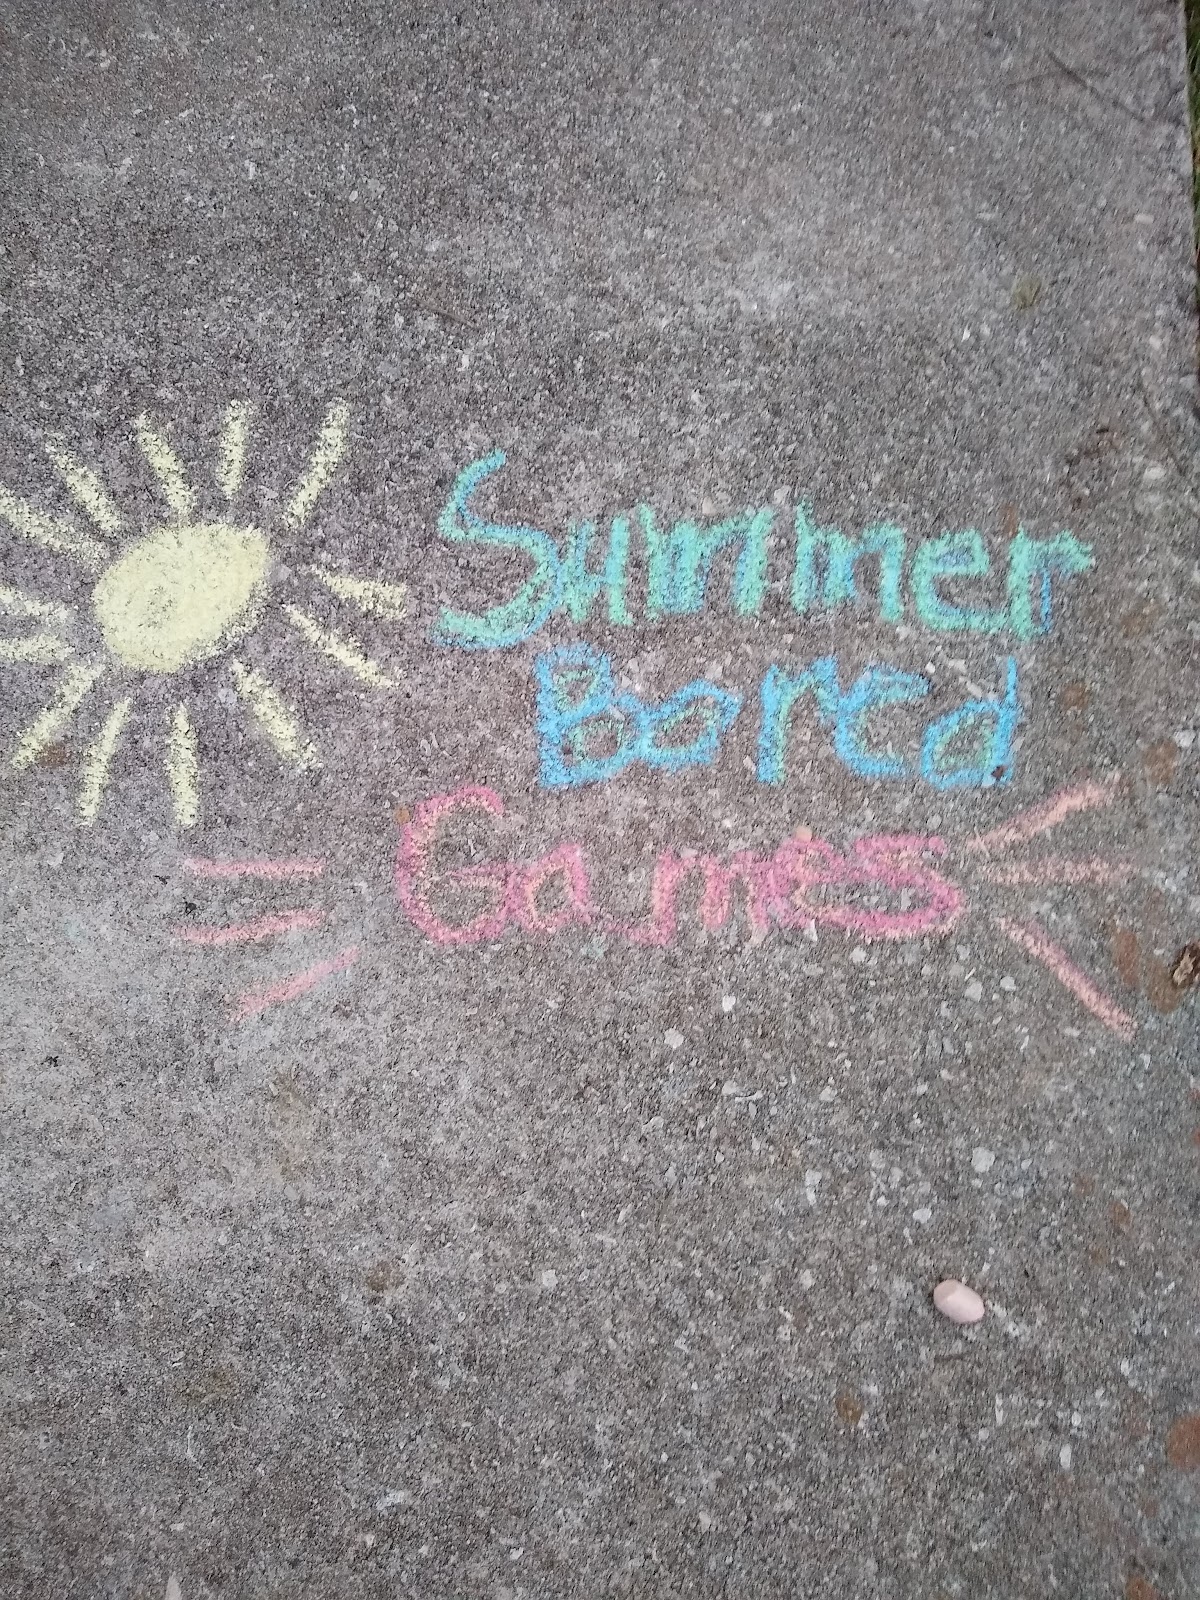 Summer
Bored
Games